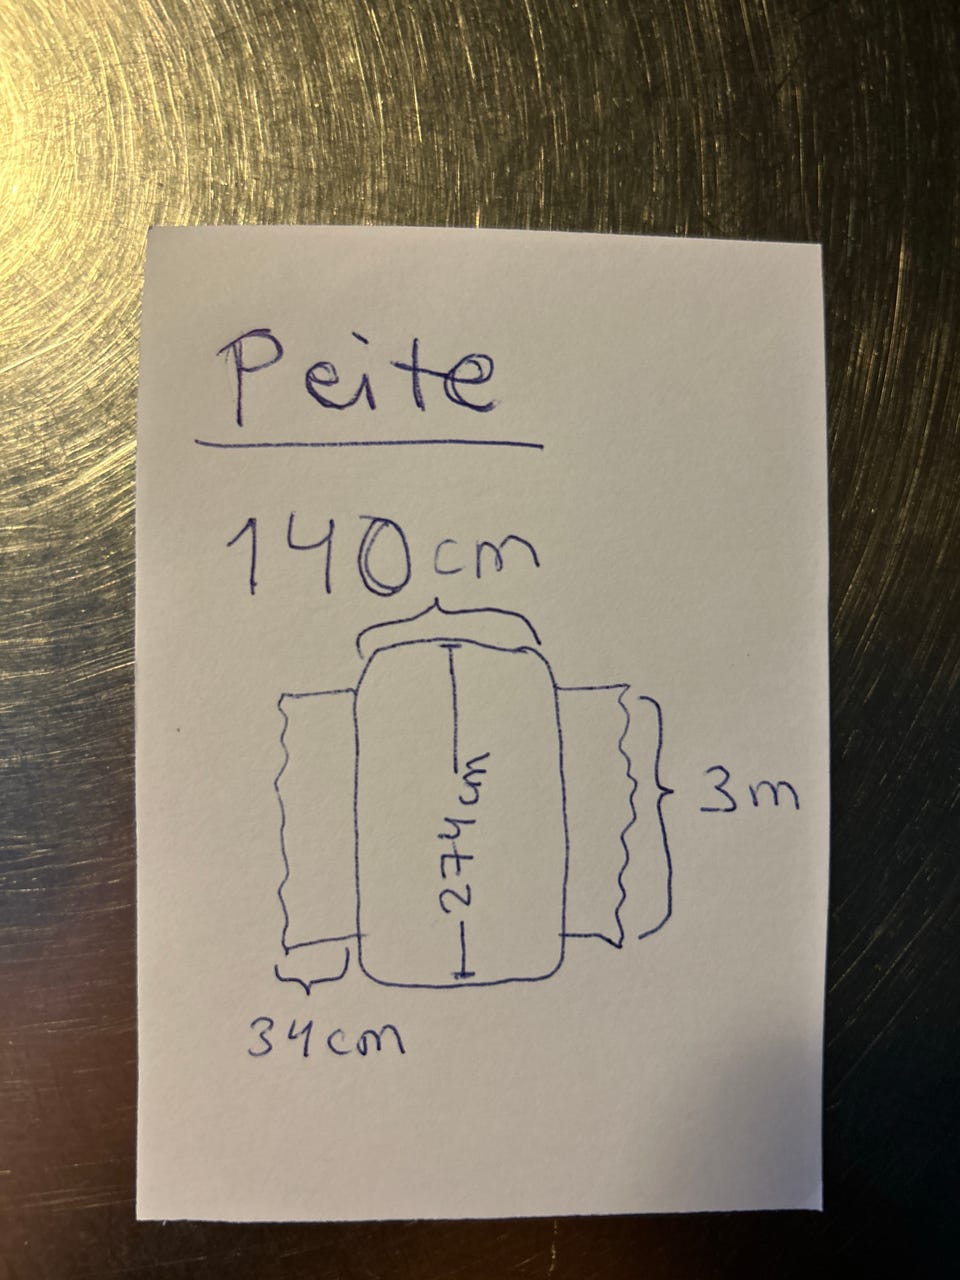 Peite
140cm
274cm
3m
34cm